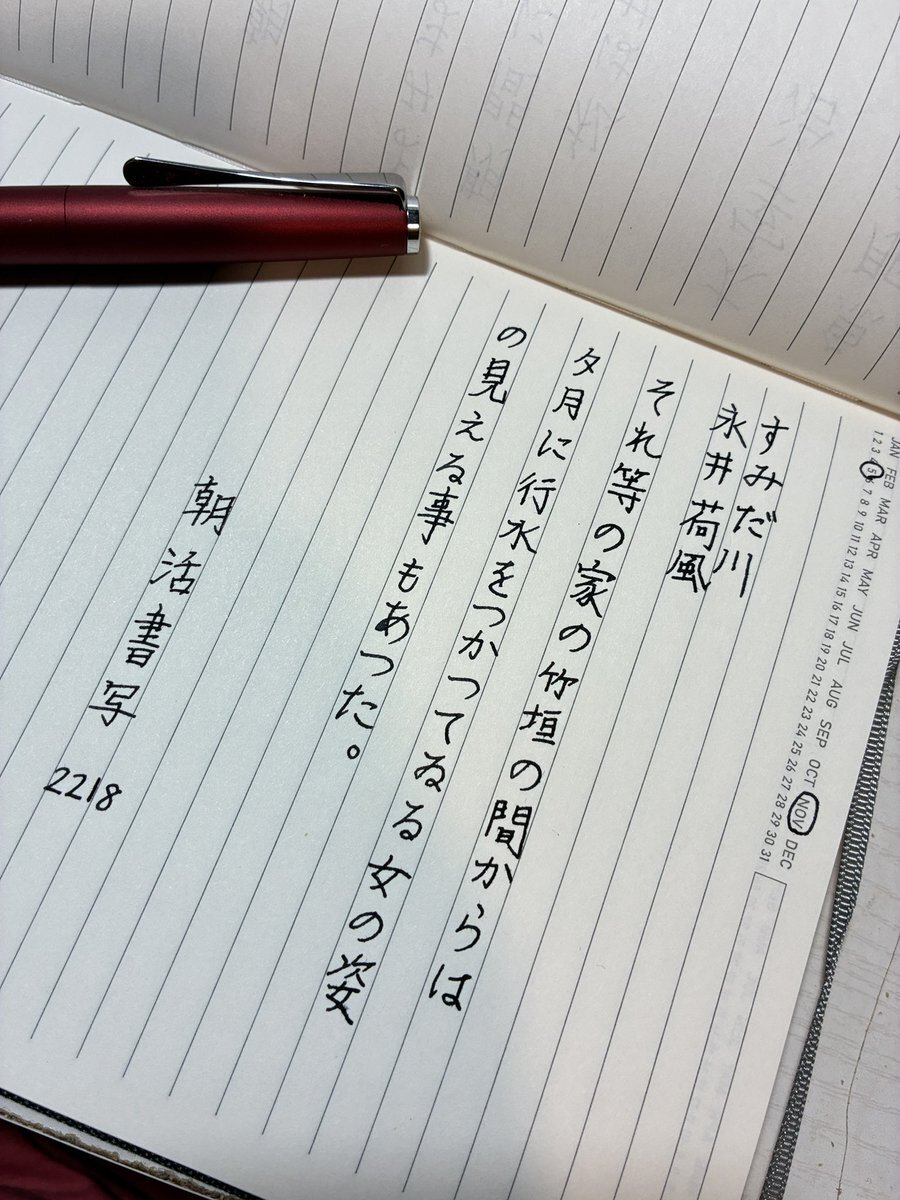 JAN FEB MAR APR MAY JUN JUL AUG SEP OCT NOV DEC
1 2 3 4 5 6 7 8 9 10 11 12 13 14 15 16 17 18 19 20 21 22 23 24 25 26 27 28 29 30 31
すみだ川
永井荷風
それ等の家の竹垣の間からは
夕月に行水をつかつてゐる女の姿
の見える事もあつた。
朝活書写
2218